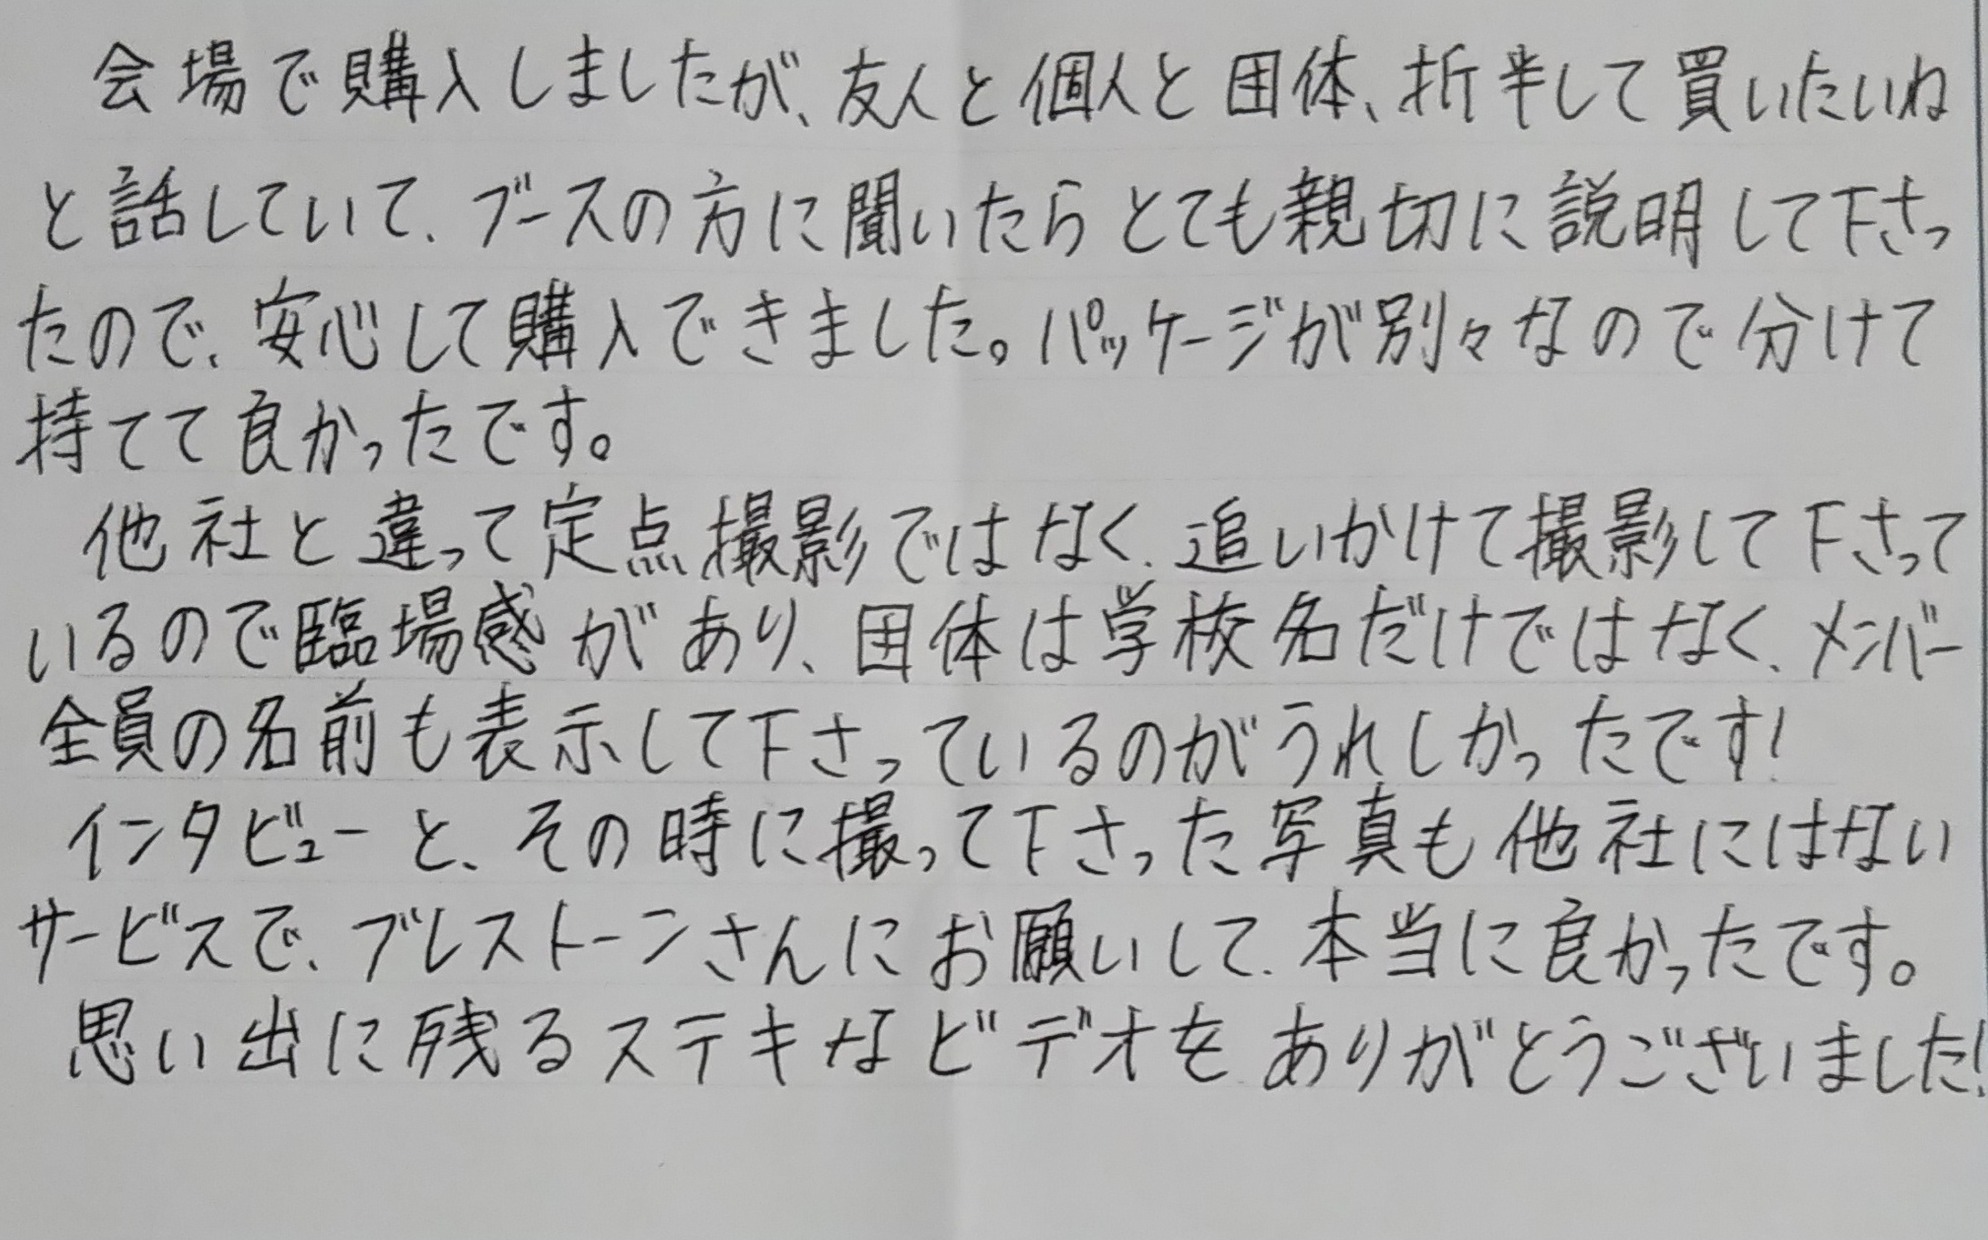 会場で購入しましたが、友人と個人と団体、折半して買いたいね
と話していて、ブースの方に聞いたらとても親切に説明して下さっ
たので、安心して購入できました。パッケージが別々なので分けて
持てて良かったです。
他社と違って定点撮影ではなく、追いかけて撮影して下さって
いるので臨場感があり、団体は学校名だけではなく、メンバー
全員の名前も表示して下さっているのがうれしかったです!
インタビューと、その時に撮って下さった写真も他社にはない
サービスで、ブレストーンさんにお願いして、本当に良かったです。
思い出に残るステキなビデオをありがとうございました!